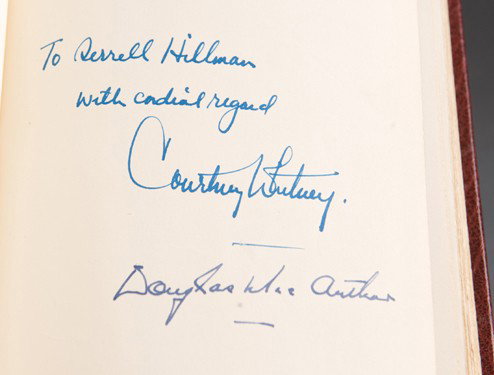 To Serrell Hillman
with cordial regard
Courtney Whitney.
Douglas MacArthur